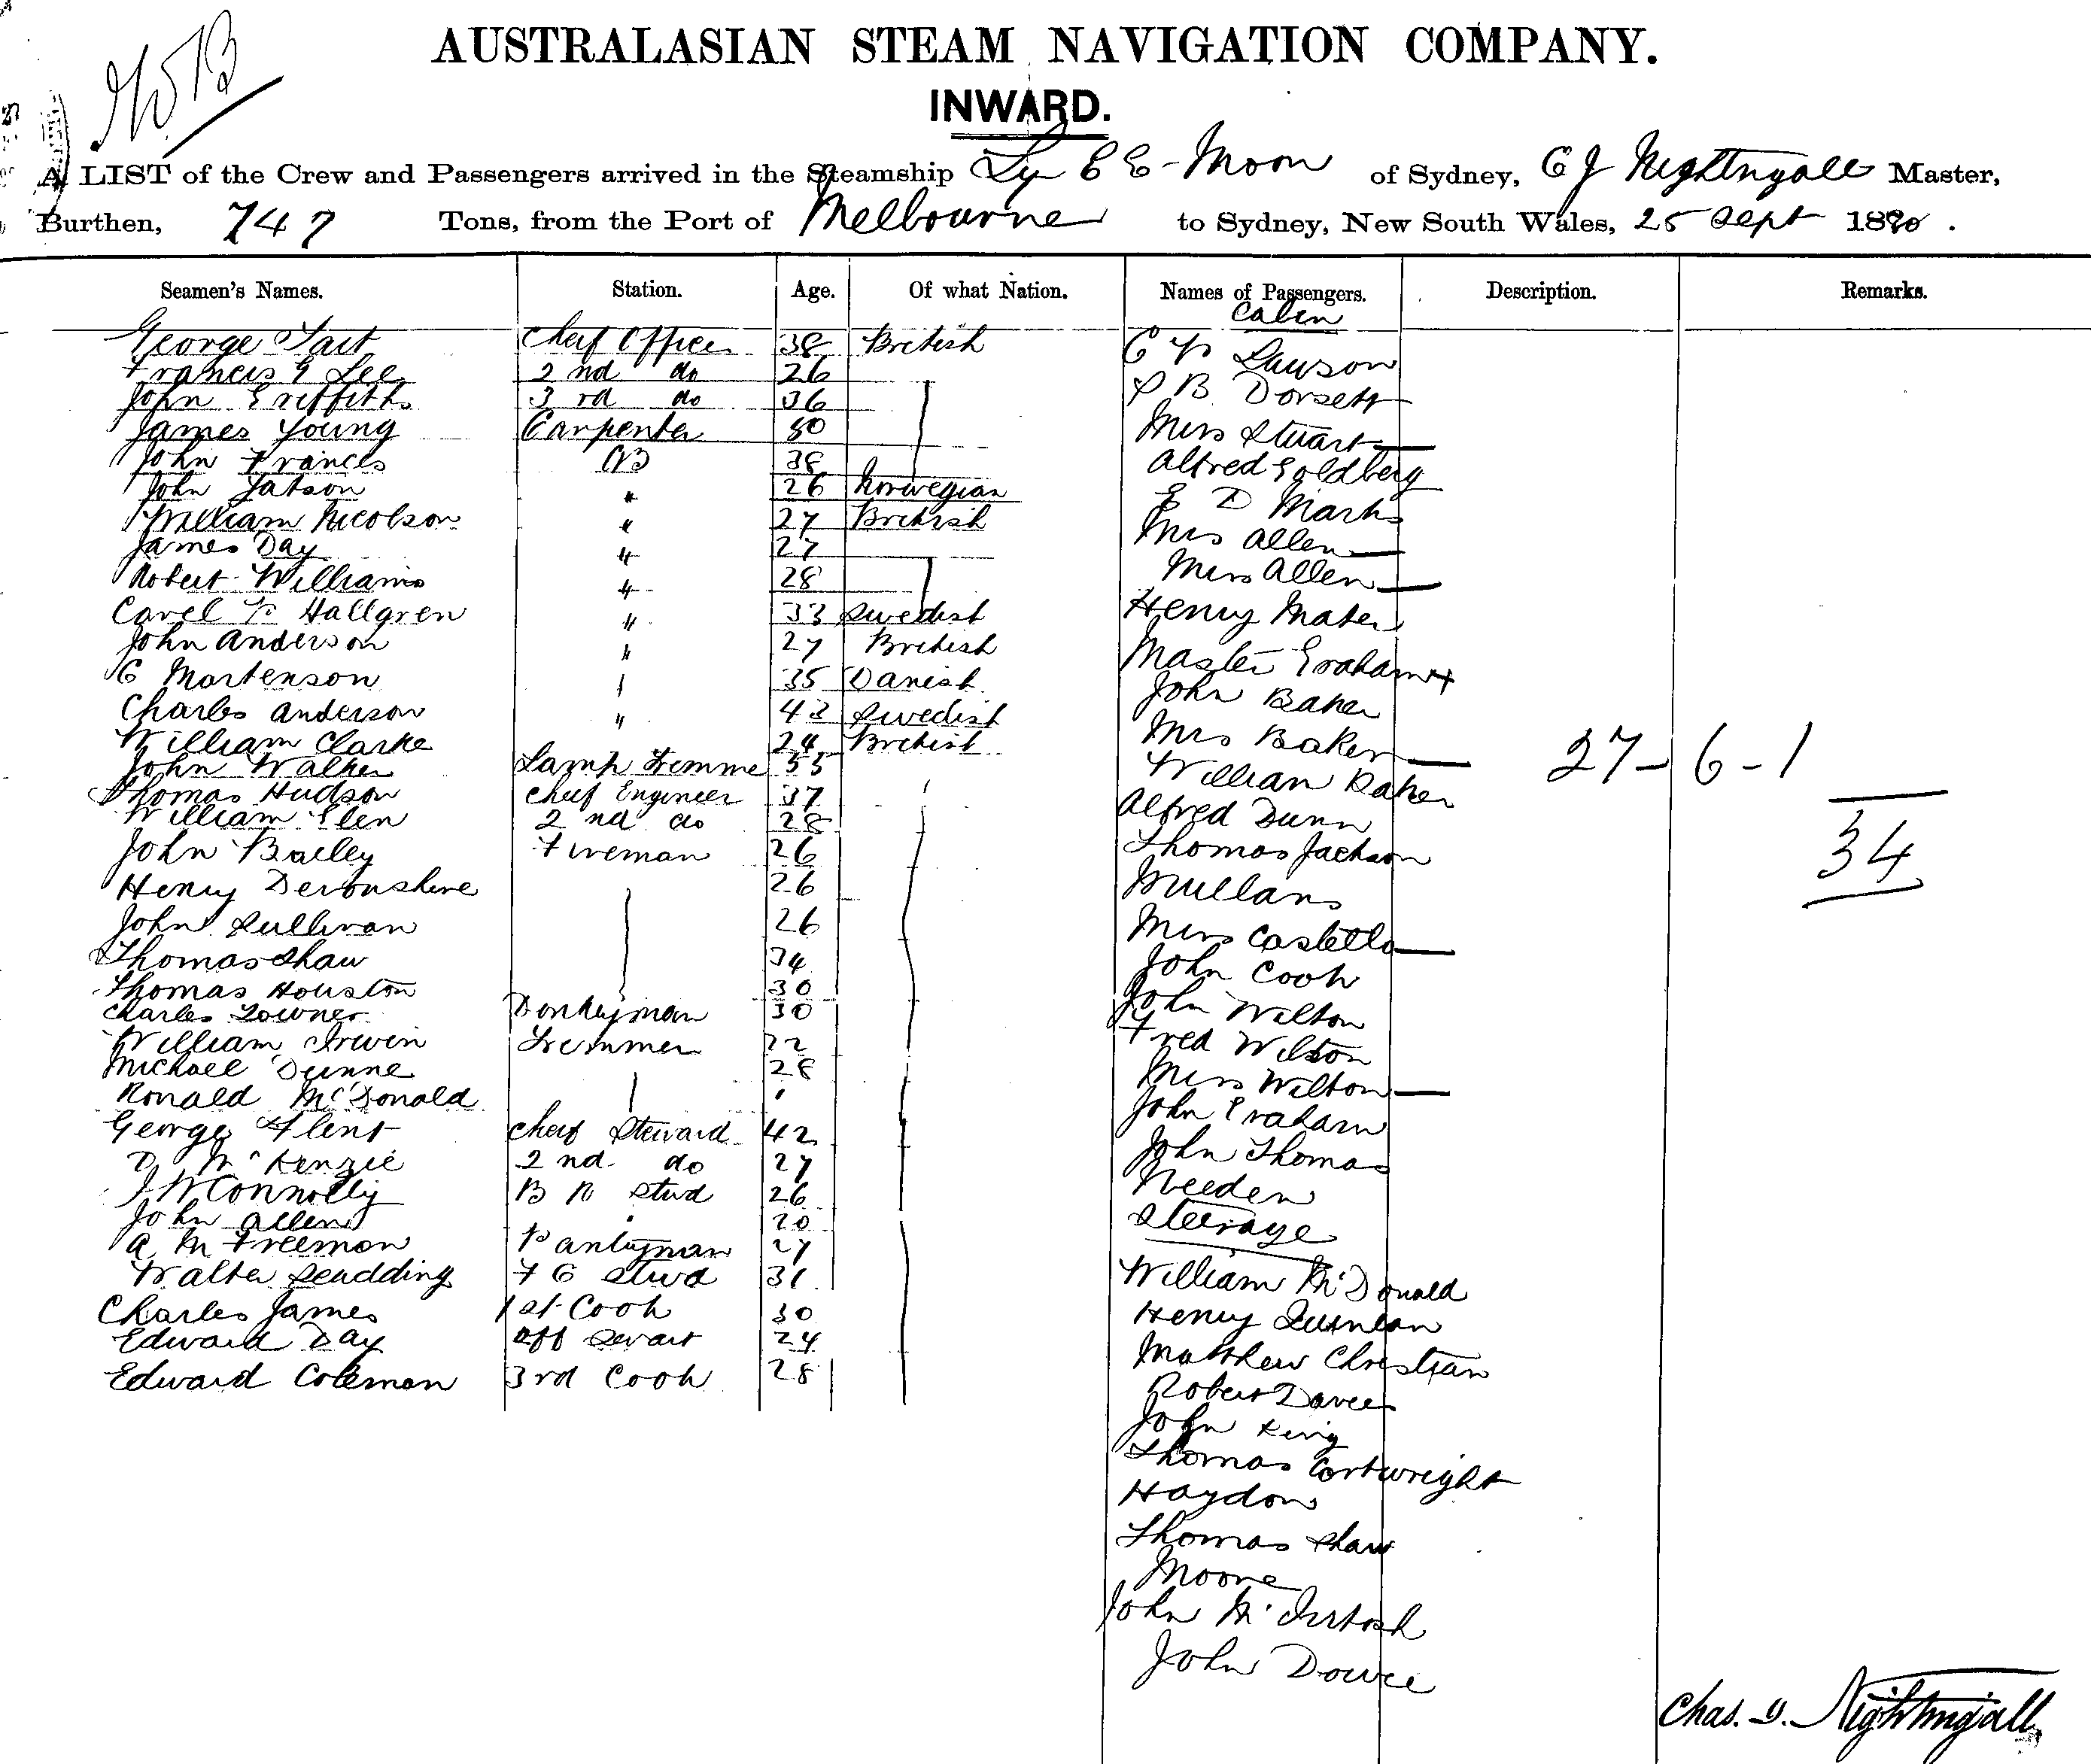 AUSTRALASIAN STEAM NAVIGATION COMPANY.
INWARD.
A LIST of the Crew and Passengers arrived in the Steamship Ly E E-Moon of Sydney, C J Nightingale Master,
Burthen, 747 Tons, from the Port of Melbourne to Sydney, New South Wales, 25 Sept 1880.
Seamen's Names. Station. Age. Of what Nation. Names of Passengers. Description. Remarks.
Cabin
George Tait Chief Officer 38 British
Francis G Lee 2nd do 26
John Griffiths 3rd do 36
James Young Carpenter 50
John Francis AB 38
John Jatson " 26 Norwegian
William Nicolson " 27 British
James Day " 27
Robert Williams " 28
Carel F Hallgren " 33 Swedish
John Anderson " 27 British
C Mortenson " 35 Danish
Charles Anderson " 43 Swedish
William Clarke 24 British
John Walker Lamp Trimmer 55
Thomas Hudson Chief Engineer 37
William Glen 2nd do 28
John Bailey Fireman 26
Henry Devonshire 26
John Sullivan 26
Thomas Shaw 34
Thomas Houston 30
Charles Towner Donkeyman 30
William Irwin Trimmer 22
Michael Dunne 28
Ronald McDonald "
George Flint Chief Steward 42
D McKenzie 2nd do 27
J W Connolly B R Stwd 26
John Allen " 20
A M Freemon Pantryman 27
Walter Scudding F C Stwd 31
Charles James 1st Cook 30
Edward Day Off Servt 24
Edward Coleman 3rd Cook 28
Lawson
B Dorsett
Miss Stuart
Alfred Goldberg
E D Marks
Mrs Allen
Miss Allen
Henry Mater
Master Graham
John Baker
Mrs Baker
William Baker
Alfred Dunn
Thomas Jackson
Mullans
Miss Castello
John Cook
John Wilton
Fred Wilson
Miss Wilton
John Graham
John Thomas
Needen
Steerage
William McDonald
Henry Quinlan
Matthew Christian
Robert Davies
John King
Thomas Cartwright
Haydon
Thomas Shaw
Moore
John McIntosh
John Dowie
27-6-1
34
Chas. J. Nightingall